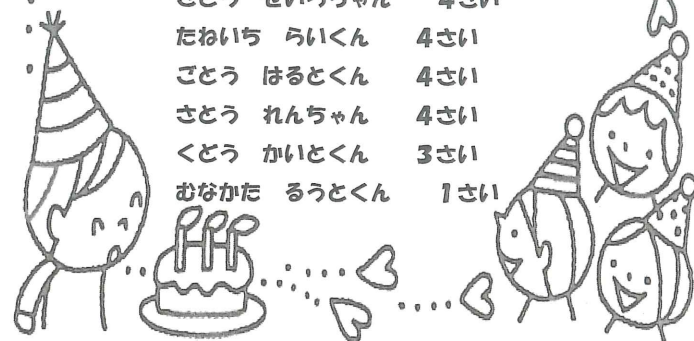 たねいち　らいくん　4さい
ごとう　はるとくん　4さい
さとう　れんちゃん　4さい
くどう　かいとくん　3さい
むなかた　るうとくん　1さい